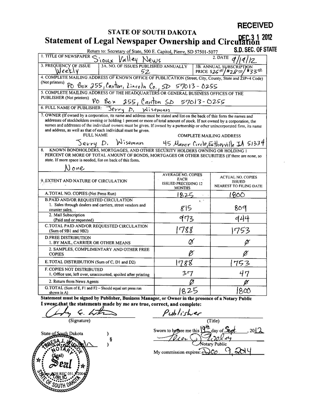 RECEIVED
DEC 31 2012
S.D. SEC. OF STATE
STATE OF SOUTH DAKOTA
Statement of Legal Newspaper Ownership and Circulation
Return to: Secretary of State, 500 E. Capitol, Pierre, SD 57501-5077
1. TITLE OF NEWSPAPER Sioux Valley News
2. DATE 9/19/12
3. FREQUENCY OF ISSUE Weekly
3A. NO. OF ISSUES PUBLISHED ANNUALLY 52
3B. ANNUAL SUBSCRIPTION PRICE
4. COMPLETE MAILING ADDRESS OF KNOWN OFFICE OF PUBLICATION (Street, City, County, State and Zip+4 Code) (Not printers)
Po Box 255, Canton, Lincoln Co, SD 57013-0255
5. COMPLETE MAILING ADDRESS OF THE HEADQUARTERS OR GENERAL BUSINESS OFFICES OF THE PUBLISHER (Not printers)
Po Box 255, Canton SD 57013-0255
6. FULL NAME OF PUBLISHER: Jerry D. Wiseman
7. OWNER (If owned by a corporation, its name and address must be stated and list on the back of this form the names and addresses of stockholders owning or holding 1 percent or more of total amount of stock. If not owned by a corporation, the names and addresses of the individual owners must be given. If owned by a partnership or other unincorporated firm, its name and address, as well as that of each individual must be given.
FULL NAME
COMPLETE MAILING ADDRESS
Jerry D. Wiseman
45 Manor Circle, Estherville IA 51334
8. KNOWN BONDHOLDERS, MORTGAGES, AND OTHER SECURITY HOLDERS OWNING OR HOLDING 1 PERCENT OR MORE OF TOTAL AMOUNT OF BONDS, MORTGAGES OR OTHER SECURITIES (If there are none, so state. If more space is needed, list on back of this form.
None
9. EXTENT AND NATURE OF CIRCULATION
AVERAGE NO. COPIES EACH ISSUED PRECEDING 12 MONTHS
ACTUAL NO. COPIES ISSUED NEAREST TO FILING DATE
A. TOTAL NO. COPIES (Net Press Run) 1825 1800
B. PAID AND/OR REQUESTED CIRCULATION
1. Sales through dealers and carriers, street vendors and counter sales. 815 809
2. Mail Subscription (Paid and or requested) 973 944
C. TOTAL PAID AND/OR REQUESTED CIRCULATION (Sum of 9B1 and 9B2) 1788 1753
D. FREE DISTRIBUTION
1. BY MAIL, CARRIER OR OTHER MEANS Ø Ø
2. SAMPLES, COMPLIMENTARY AND OTHER FREE COPIES Ø Ø
E. TOTAL DISTRIBUTION (Sum of C, D1 and D2) 1788 1753
F. COPIES NOT DISTRIBUTED
1. Office use, left over, unaccounted, spoiled after printing 37 47
2. Return from News Agents Ø Ø
G. TOTAL (Sum of E, F1 and F2 - Should equal net press run shown in A) 1825 1800
Statement must be signed by Publisher, Business Manager, or Owner in the presence of a Notary Public
I swear that the statements made by me are true, correct, and complete:
Publisher
(Signature)
(Title)
State of South Dakota
Sworn to before me this 19th day of Sept, 2012
Notary Public
(Seal)
My commission expires:
NOTARY
SOUTH DAKOTA